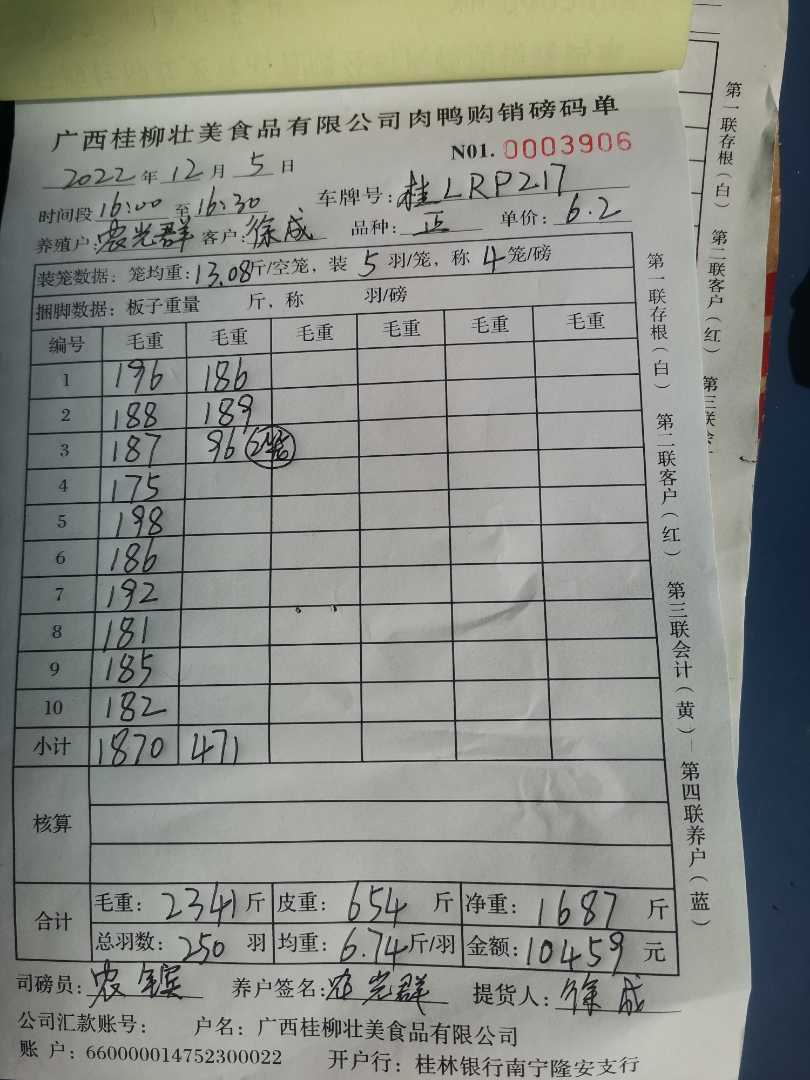 广西桂柳壮美食品有限公司肉鸭购销磅码单
N01. 0003906
2022 年 12 月 5 日
时间段 16:00 至 16:30 车牌号: 桂LRP217
养殖户: 农光群 客户: 徐成 品种: 正 单价: 6.2
装笼数据: 笼均重: 13.08 斤/空笼, 装 5 羽/笼, 称 4 笼/磅
捆脚数据: 板子重量 斤, 称 羽/磅
编号 毛重 毛重 毛重 毛重 毛重 毛重
1 196 186
2 188 189
3 187 96
4 175
5 198
6 186
7 192
8 181
9 185
10 182
小计 1870 471
核算
合计 毛重: 2341 斤 皮重: 654 斤 净重: 1687 斤
总羽数: 250 羽 均重: 6.74 斤/羽 金额: 10459 元
司磅员: 农 养户签名: 农光群 提货人: 徐成
公司汇款账号: 户名: 广西桂柳壮美食品有限公司
账 户: 660000014752300022 开户行: 桂林银行南宁隆安支行
第一联存根(白) 第二联客户(红) 第三联会计(黄) 第四联养户(蓝)
第一联存根(白) 第二联客户(红) 第三联会